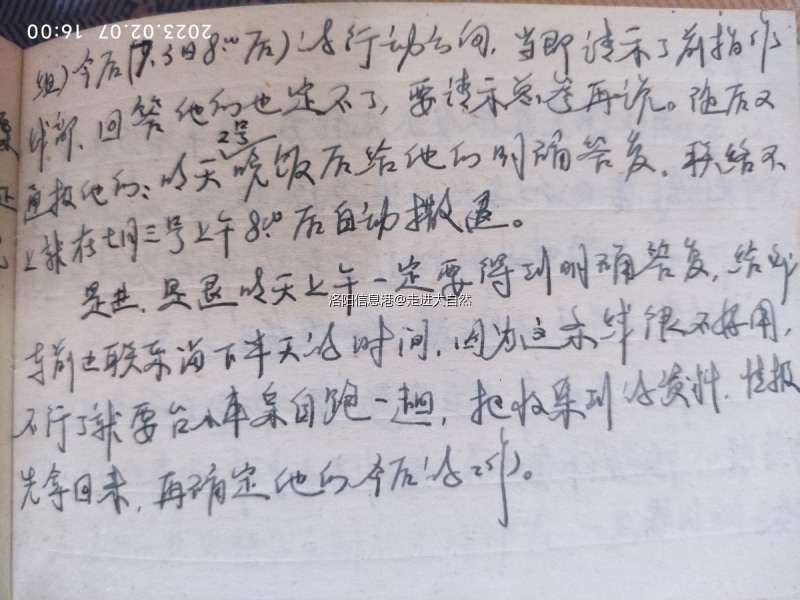 2023.02.07 16:00
组)今后(7.3日8:00后)的行动台间,当即请示了前指作
战部,回答他们也定不了,要请示总参再说。随后又
2号
通报他们:明天晚饭后给他们明确答复。联络不
上就在七月三号上午8:00后自动撤退。
是进、是退明天上午一定要得到明确答复,给
导前出联东海下半天的时间,因为这条线很不好用,
不行了就要台小车亲自跑一趟,把收集到的资料、情报
先拿回来,再确定他们今后的工作。
洛阳信息港@走进大自然